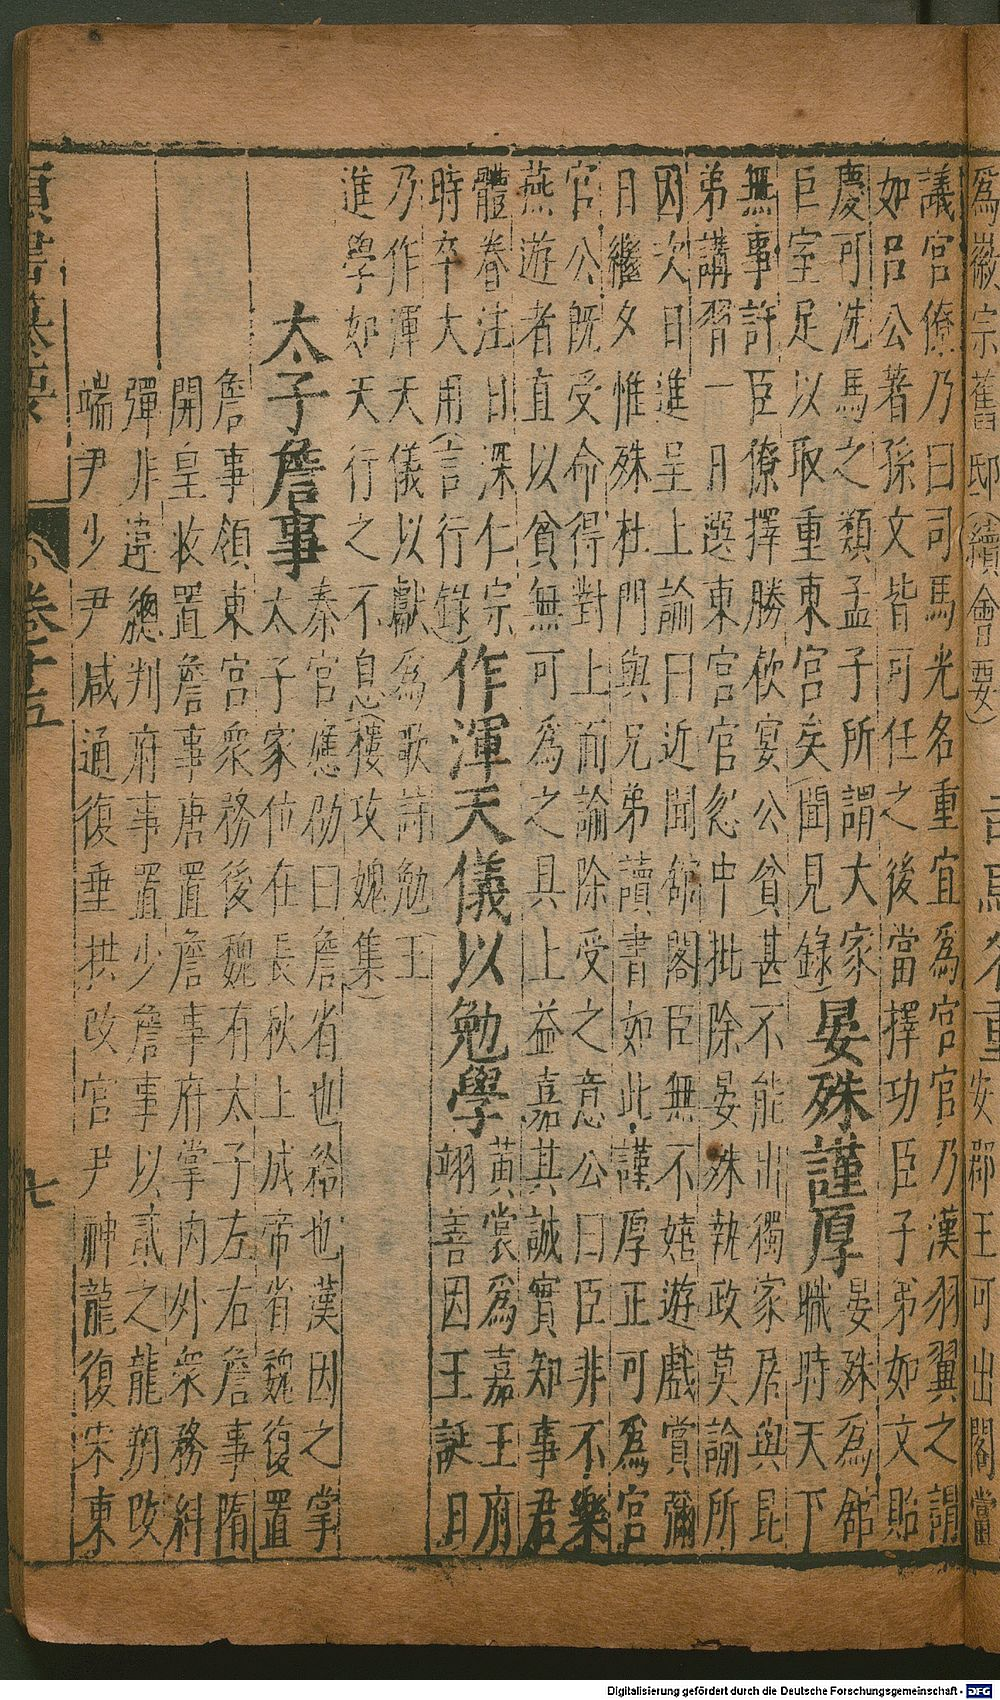 為徽宗舊邸(續會要) 司馬名重 安郡王可出閣當
議官僚乃曰司馬光名重宜為宮官乃漢羽翼之謂
如呂公著孫文皆可任之後當擇功臣子弟如文貽
慶可冼馬之類孟子所謂大家
巨室足以取重東宮矣(聞見錄)晏殊謹厚晏殊為館
職時天下
無事許臣僚擇勝飲宴公貧甚不能出獨家居與昆
弟講習一日選東宮官忽中批除晏殊執政莫諭所
因次日進呈上諭曰近聞館閣臣無不嬉遊戲賞彌
日繼夕惟殊杜門與兄弟讀書如此謹厚正可為宮
官公既受命得對上面諭除受之意公曰臣非不樂
燕遊者直以貧無可為之具上益嘉其誠實知事君
體眷注日深仁宗
時卒大用(言行錄)作渾天儀以勉學黃裳為嘉王府
翊善因王誕日
乃作渾天儀以獻為歌詩勉王
進學如天行之不息(樓攻媿集)
太子詹事秦官應劭曰詹省也給也漢因之掌
太子家位在長秋上成帝省魏復置
詹事領東宮衆務後魏有太子左右詹事隋
開皇收置詹事唐置詹事府掌內外衆務糾
彈非違總判府事置少詹事以貳之龍朔改
端尹少尹咸通復垂拱改宮尹神龍復宋東
卷十五
七
Digitalisierung gefördert durch die Deutsche Forschungsgemeinschaft - DFG